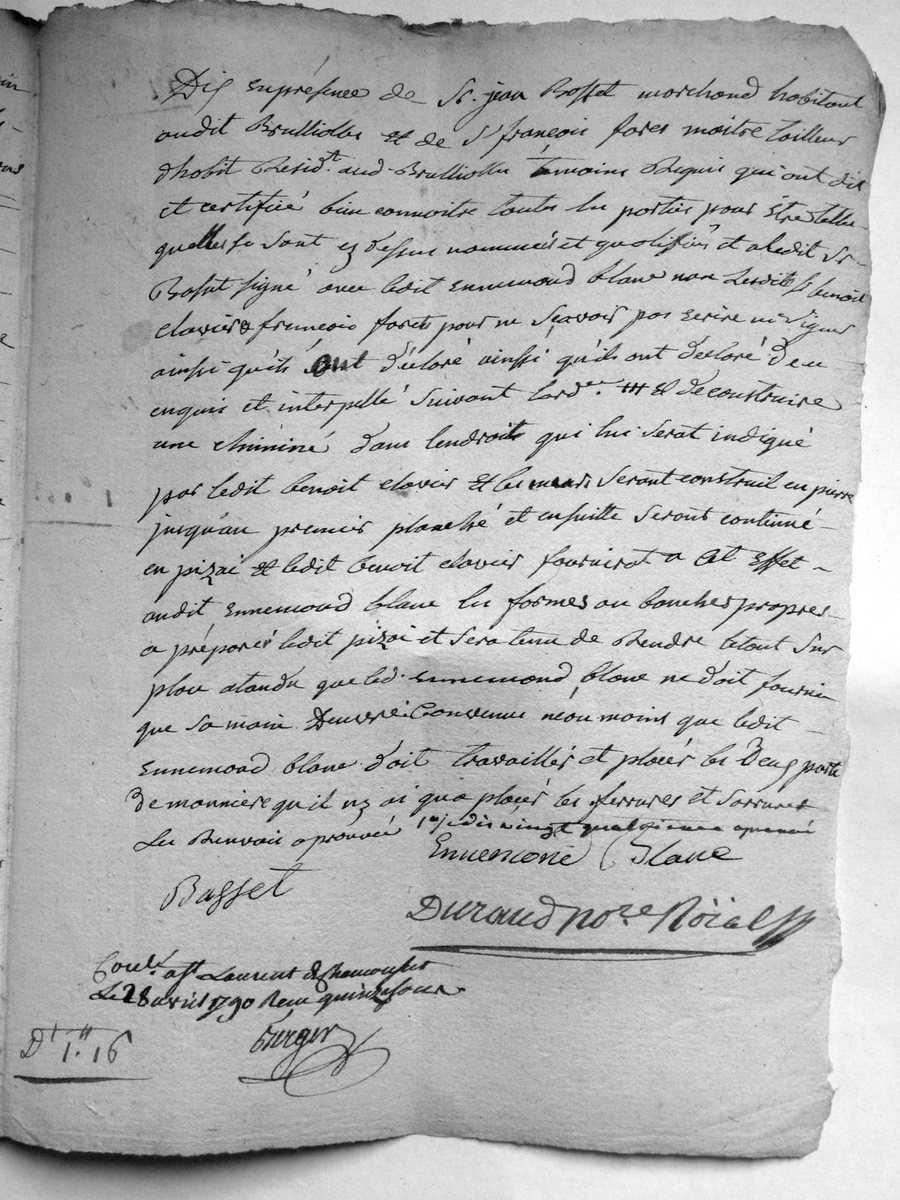 Dix en présence de Sr. jean Basset marchand habitant
audit Brulliolles et de Sr françois fores maitre tailleur
d'habit Residt. aud. Brulliolles témoins Requis qui ont dit
et certiffié bien connoitre toutes les parties pour etre telles
quelles se sont cy dessus nommées et qualiffiés et a ledit Sr
Basset signé avec ledit Ennemond blanc non lesdits Sr benoit
clavier & francois forets pour ne sçavoir pas ecrire ni signer
ainsi qu'ils ont déclaré ainsi qu'ils ont declaré de ce
enquis et interpellé suivant lord.ce et de construire
une chéminé dans lendroit qui lui serat indiqué
par ledit benoit clavier et les murs seront construit en pierre
jusqu'au premier planché et ensuitte seront continué
en pizai et ledit benoit clavier fournirat a cet effet
audit Ennemond blanc les formes ou banches propres
a préparér ledit pizai et sera tenu de Rendre le tout sur
place atandu que led. Ennemond blanc ne doit fournir
que sa main Deuvré. Convenu néan moins que ledit
Ennemond blanc doit travaillér et placér les Deux porte
De manniere qu'il ny ai qua placér les ferrures et sarrures
Les Renvoi aprouvé
Ennemond Blanc
Basset
Durand nore Roial
Conlé. a St Laurent de Chamousset
Le 28 avril 1790 Reçu quinze sous
Berger
Dt 1" 16